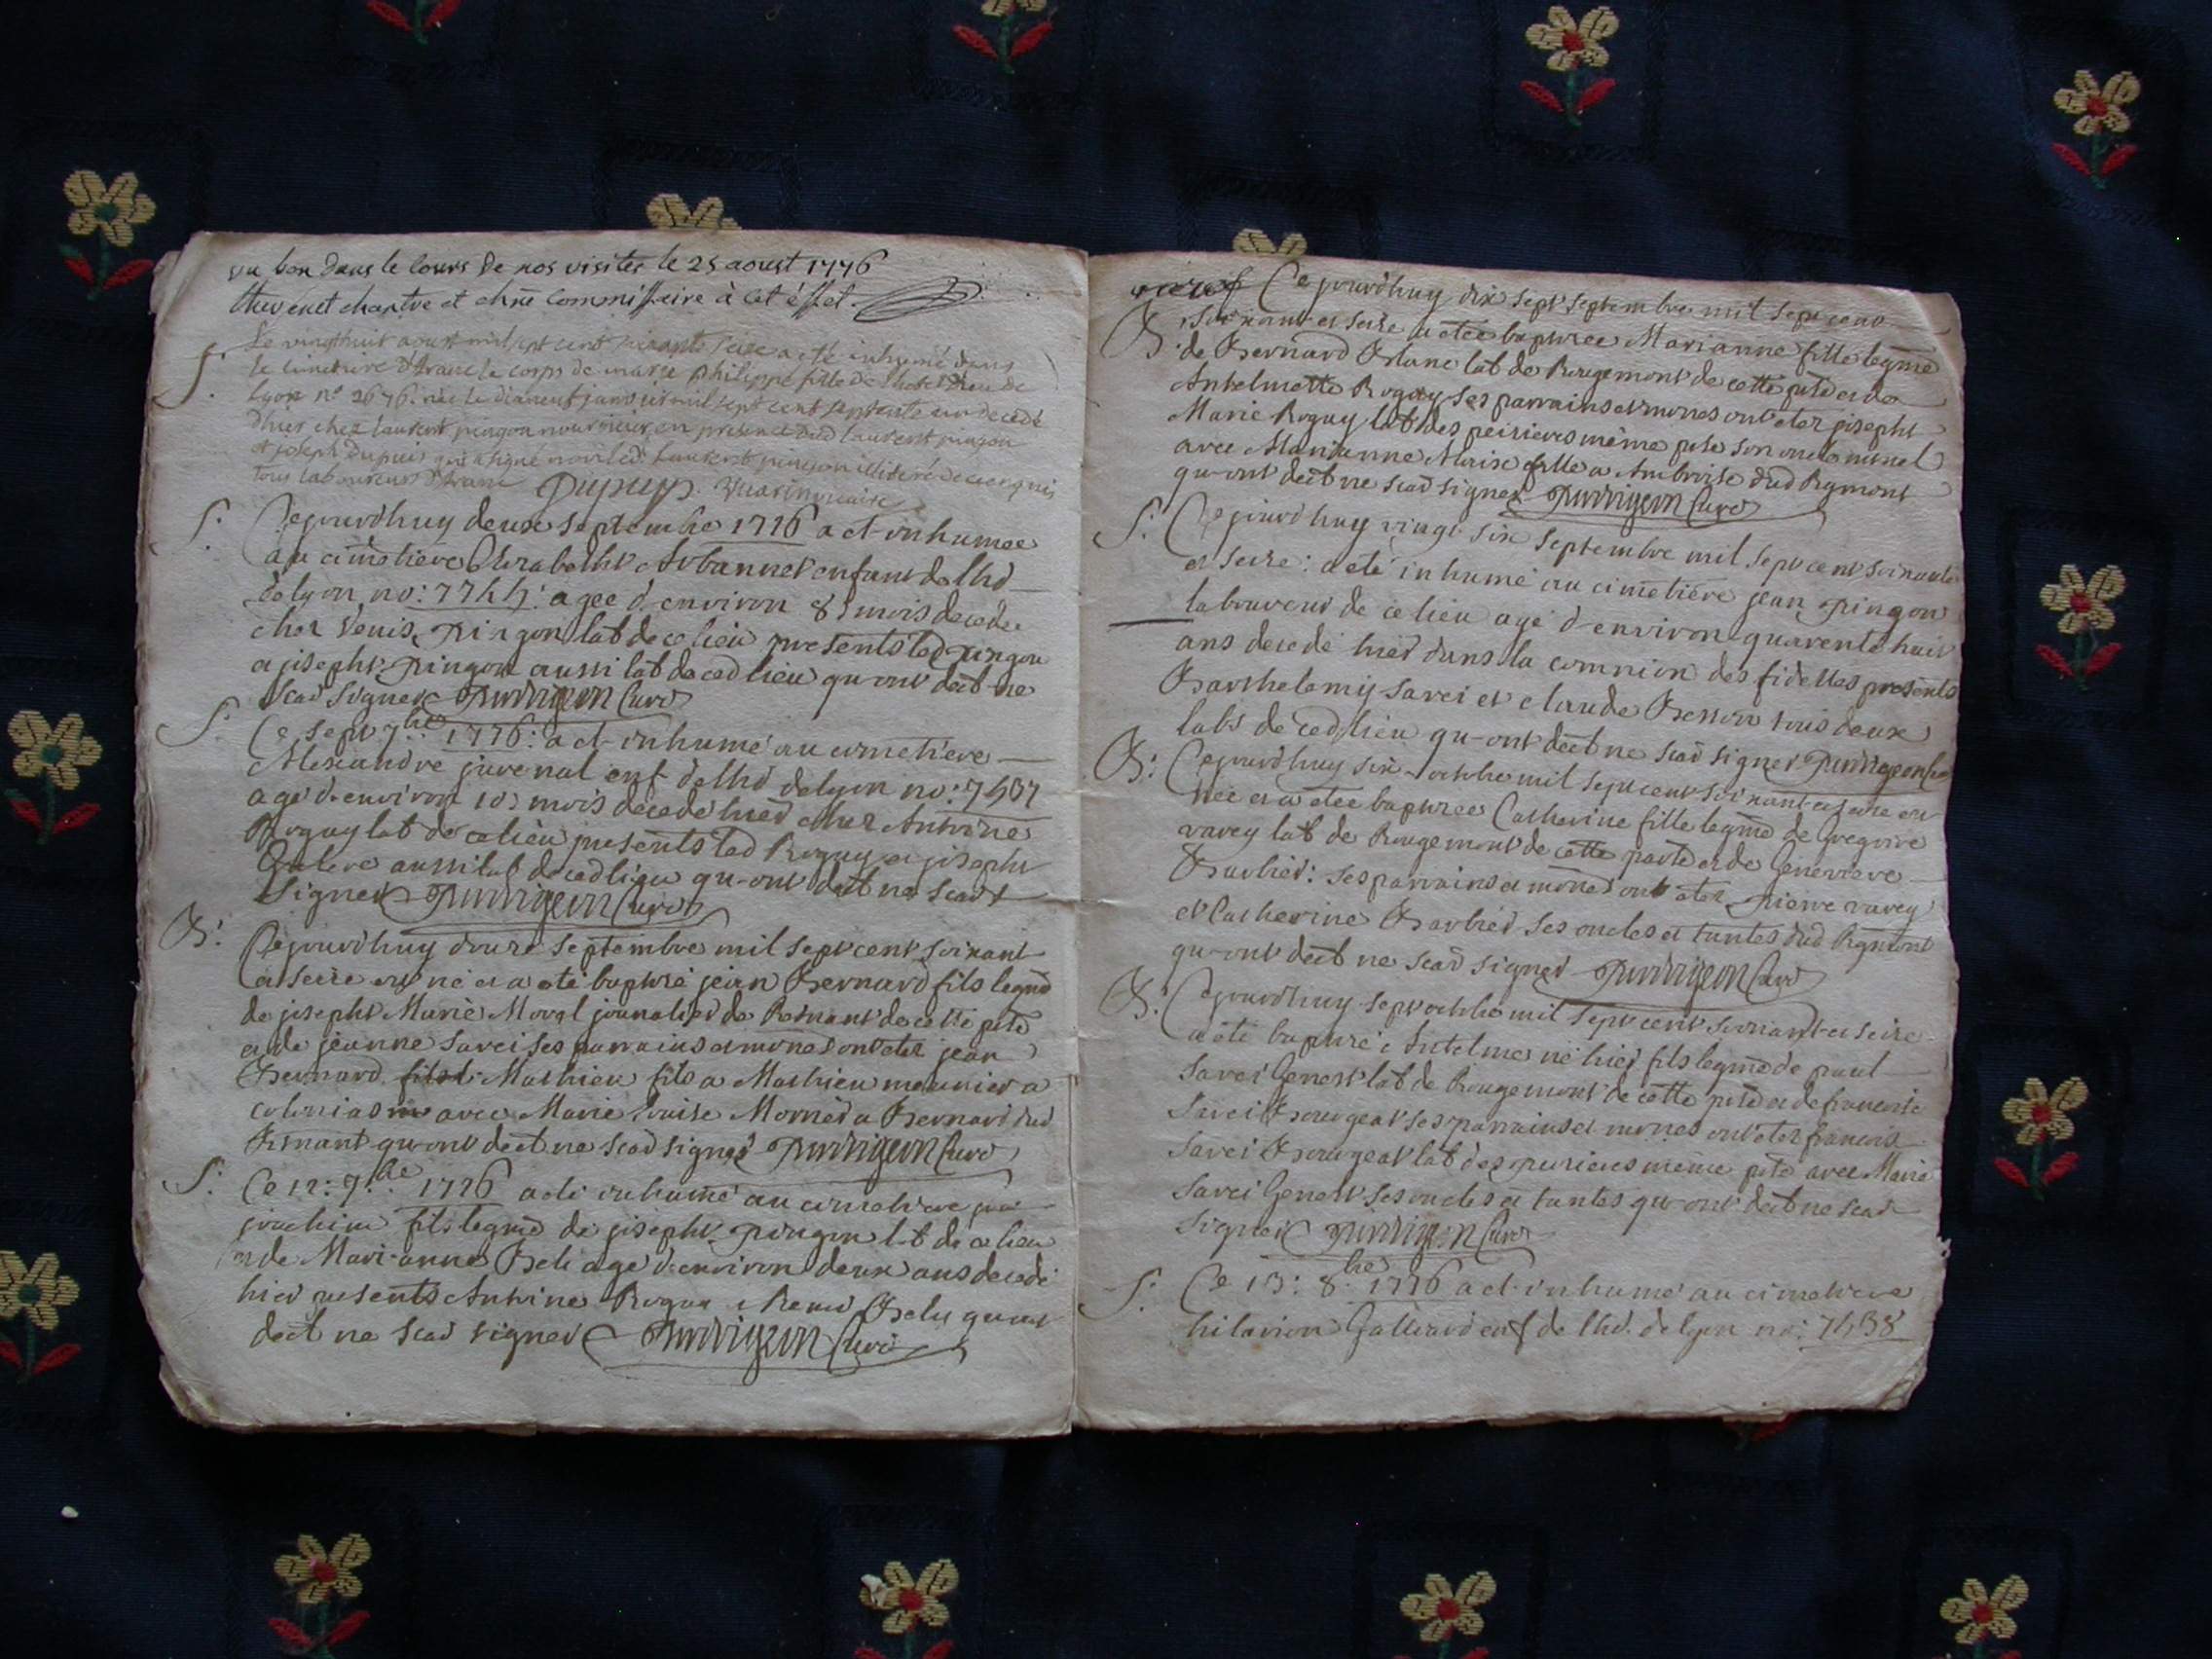 vu bon dans le cours de nos visites le 25 aoust 1776
chantre et chne commissaire à cet effet.
S.
Le vingthuit aoust mil sept cent soixante seize a été inhumé dans
le cimetiere d'Aranc le corps de marie philippe fille de l'hotel Dieu de
Lyon n° 2676. née le dixneuf janvier mil sept cent septente un decedé
d'hier chez laurent pingon nourricier en presence dud laurent pingon
et joseph Dupuis qui a signé non led. laurent pingon illiteré de ce enquis
tous laboureurs d'Aranc Dupuy. vicaire
S. Cejourdhuy deux septembre 1776 a et inhumee
au cimetiere Elizabeth enfant de lhd
de lyon no: 7744: agee d'environ 8 mois decedee
chez Denis pingon lab de ce lieu presents led pingon
a joseph pingon aussi lab de ced lieu qu-ont dect ne
scav signer Curé
S. Ce sept 7.bre 1776: a et inhumé au cimetiere
Alexandre juvenal enf de lhd de lyon no: 7507
agé d'environ 10 mois decedé hier chez Antoine
Roguy lab de ce lieu presents led Roguy a joseph
aussi lab de ced lieu qu-ont dect ne scavt
signer Curé
B: Cejourdhuy douze septembre mil sept cent soixant
a seize est né a a eté baptizé jean Bernard fils legme
de joseph Marie Moral jounalier de Resnant de cette psse
a de jeanne Savei ses parrains a mones ont eter jean
Bernard Mathieu fils a Mathieu meunier a
avec Marie louise Mornet a Bernard dud
Resnant qu-ont dect ne scav signer Curé
S: Ce 12: 7.bre 1776 a eté inhumé au cimetiere
joachim fils legme de joseph pingon lab de ce lieu
a de Mari-anne Beli agé d'environ deux ans decedé
hier presents Antoine Rogux Bely qu-ont
dect ne scav signer Curé
Cejourdhuy dix sept septembre mil sept cent
B. soixant a seize a etée baptizee Marianne fille legme
de Bernard Blanc lab de Rougemont de cette psse a de
Antelmette Roguy ses parrains a mones ont eter joseph
Marie Roguy lab des peisieres même psse son oncle
avec Marianne fille a Ambroise dud Rgmont
qu-ont dect ne scav signer Curé
S. Cejourdhuy vingt six septembre mil sept cent soixante
et seize: a eté inhumé au cimetiére jean pingon
laboureur de ce lieu agé d'environ quarente huit
ans decedé hier dans la comnion des fidelles presents
Barthelemy Savei et claude Besson tous deux
labs de ced lieu qu-ont dect ne scav signer
B: Cejourdhuy six octobre mil sept cent soixant a seize est
née a a etee baptizee Catherine fille legme de Gregoire
varey lab de Rougemont de cette psse a de Genevieve
Barbier: ses parrains a mones ont eter pierre varey
et Catherine Barbier ses oncles a tantes dud Rgmont
qu-ont dect ne scav signer Curé
B. Cejourdhuy sept octobre mil sept cent soixant a seize
a eté baptizé Antelme né hier fils legme de paul
Savei Genest lab de Rougemont de cette psse a de francoise
Savei Bourgeat ses parrains a mones ont eter francois
Savei Bourgeat lab des peisieres même psse avec Marie
Savei Genest ses oncles a tantes qu-ont dect ne scav
signer Curé
S: Ce 13: 8.bre 1776 a et inhumé au cimetiere
hilarion Galliard enf de lhd. de lyon no: 7538